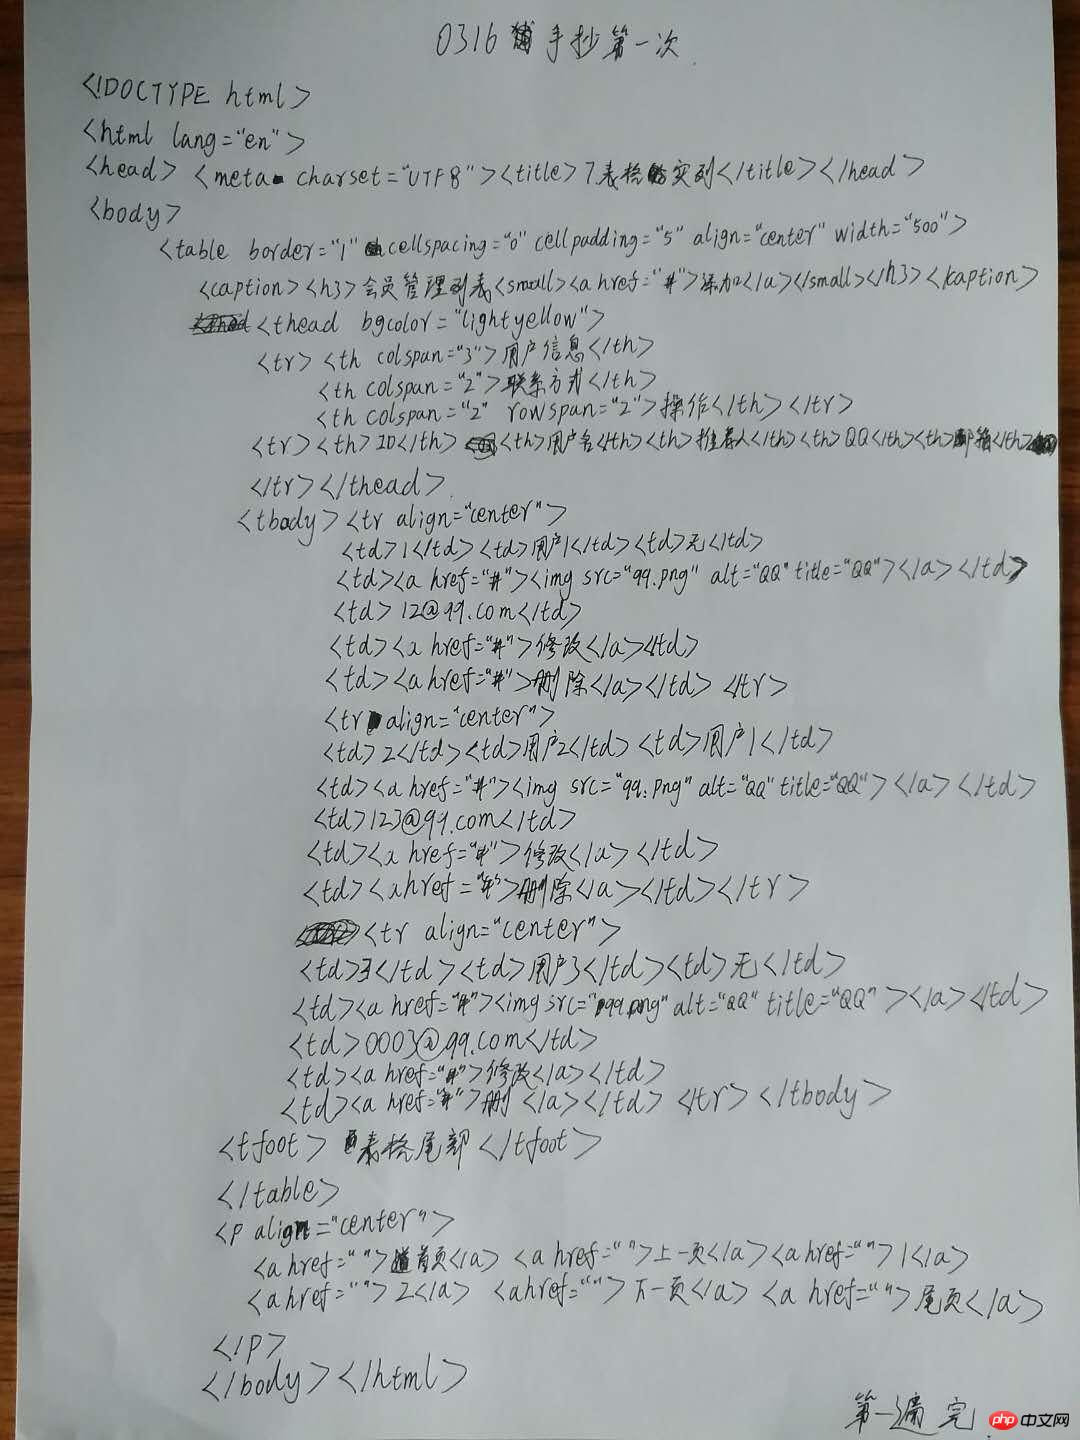 0316 手抄第一次
<!DOCTYPE html>
<html lang="en">
<head> <meta charset="UTF8"><title>7.表格实列</title></head>
<body>
<table border="1" cellspacing="0" cellpadding="5" align="center" width="500">
<caption><h3>会员管理列表<small><a href="#">添加</a></small></h3></kaption>
<thead bgcolor="lightyellow">
<tr><th colspan="3">用户信息</th>
<th colspan="2">联系方式</th>
<th colspan="2" rowspan="2">操作</th></tr>
<tr><th>ID</th> <th>用户名</th><th>推荐人</th><th>QQ</th><th>邮箱</th>
</tr></thead>
<tbody><tr align="center">
<td>1</td><td>用户1</td><td>无</td>
<td><a href="#"><img src="qq.png" alt="QQ" title="QQ"></a></td>
<td>12@qq.com</td>
<td><a href="#">修改</a></td>
<td><a href="#">删除</a></td></tr>
<tr align="center">
<td>2</td><td>用户2</td><td>用户1</td>
<td><a href="#"><img src="qq.png" alt="QQ" title="QQ"></a></td>
<td>123@qq.com</td>
<td><a href="#">修改</a></td>
<td><a href="#">删除</a></td></tr>
<tr align="center">
<td>3</td><td>用户3</td><td>无</td>
<td><a href="#"><img src="qq.png" alt="QQ" title="QQ"></a></td>
<td>0003@qq.com</td>
<td><a href="#">修改</a></td>
<td><a href="#">删</a></td></tr></tbody>
<tfoot> 表格尾部</tfoot>
</table>
<p align="center">
<a href=" ">首页</a> <a href=" ">上一页</a><a href=" ">1</a>
<a href=" ">2</a> <a href=" ">下一页</a> <a href=" ">尾页</a>
</p>
</body></html>
第一遍 完.
php中文网